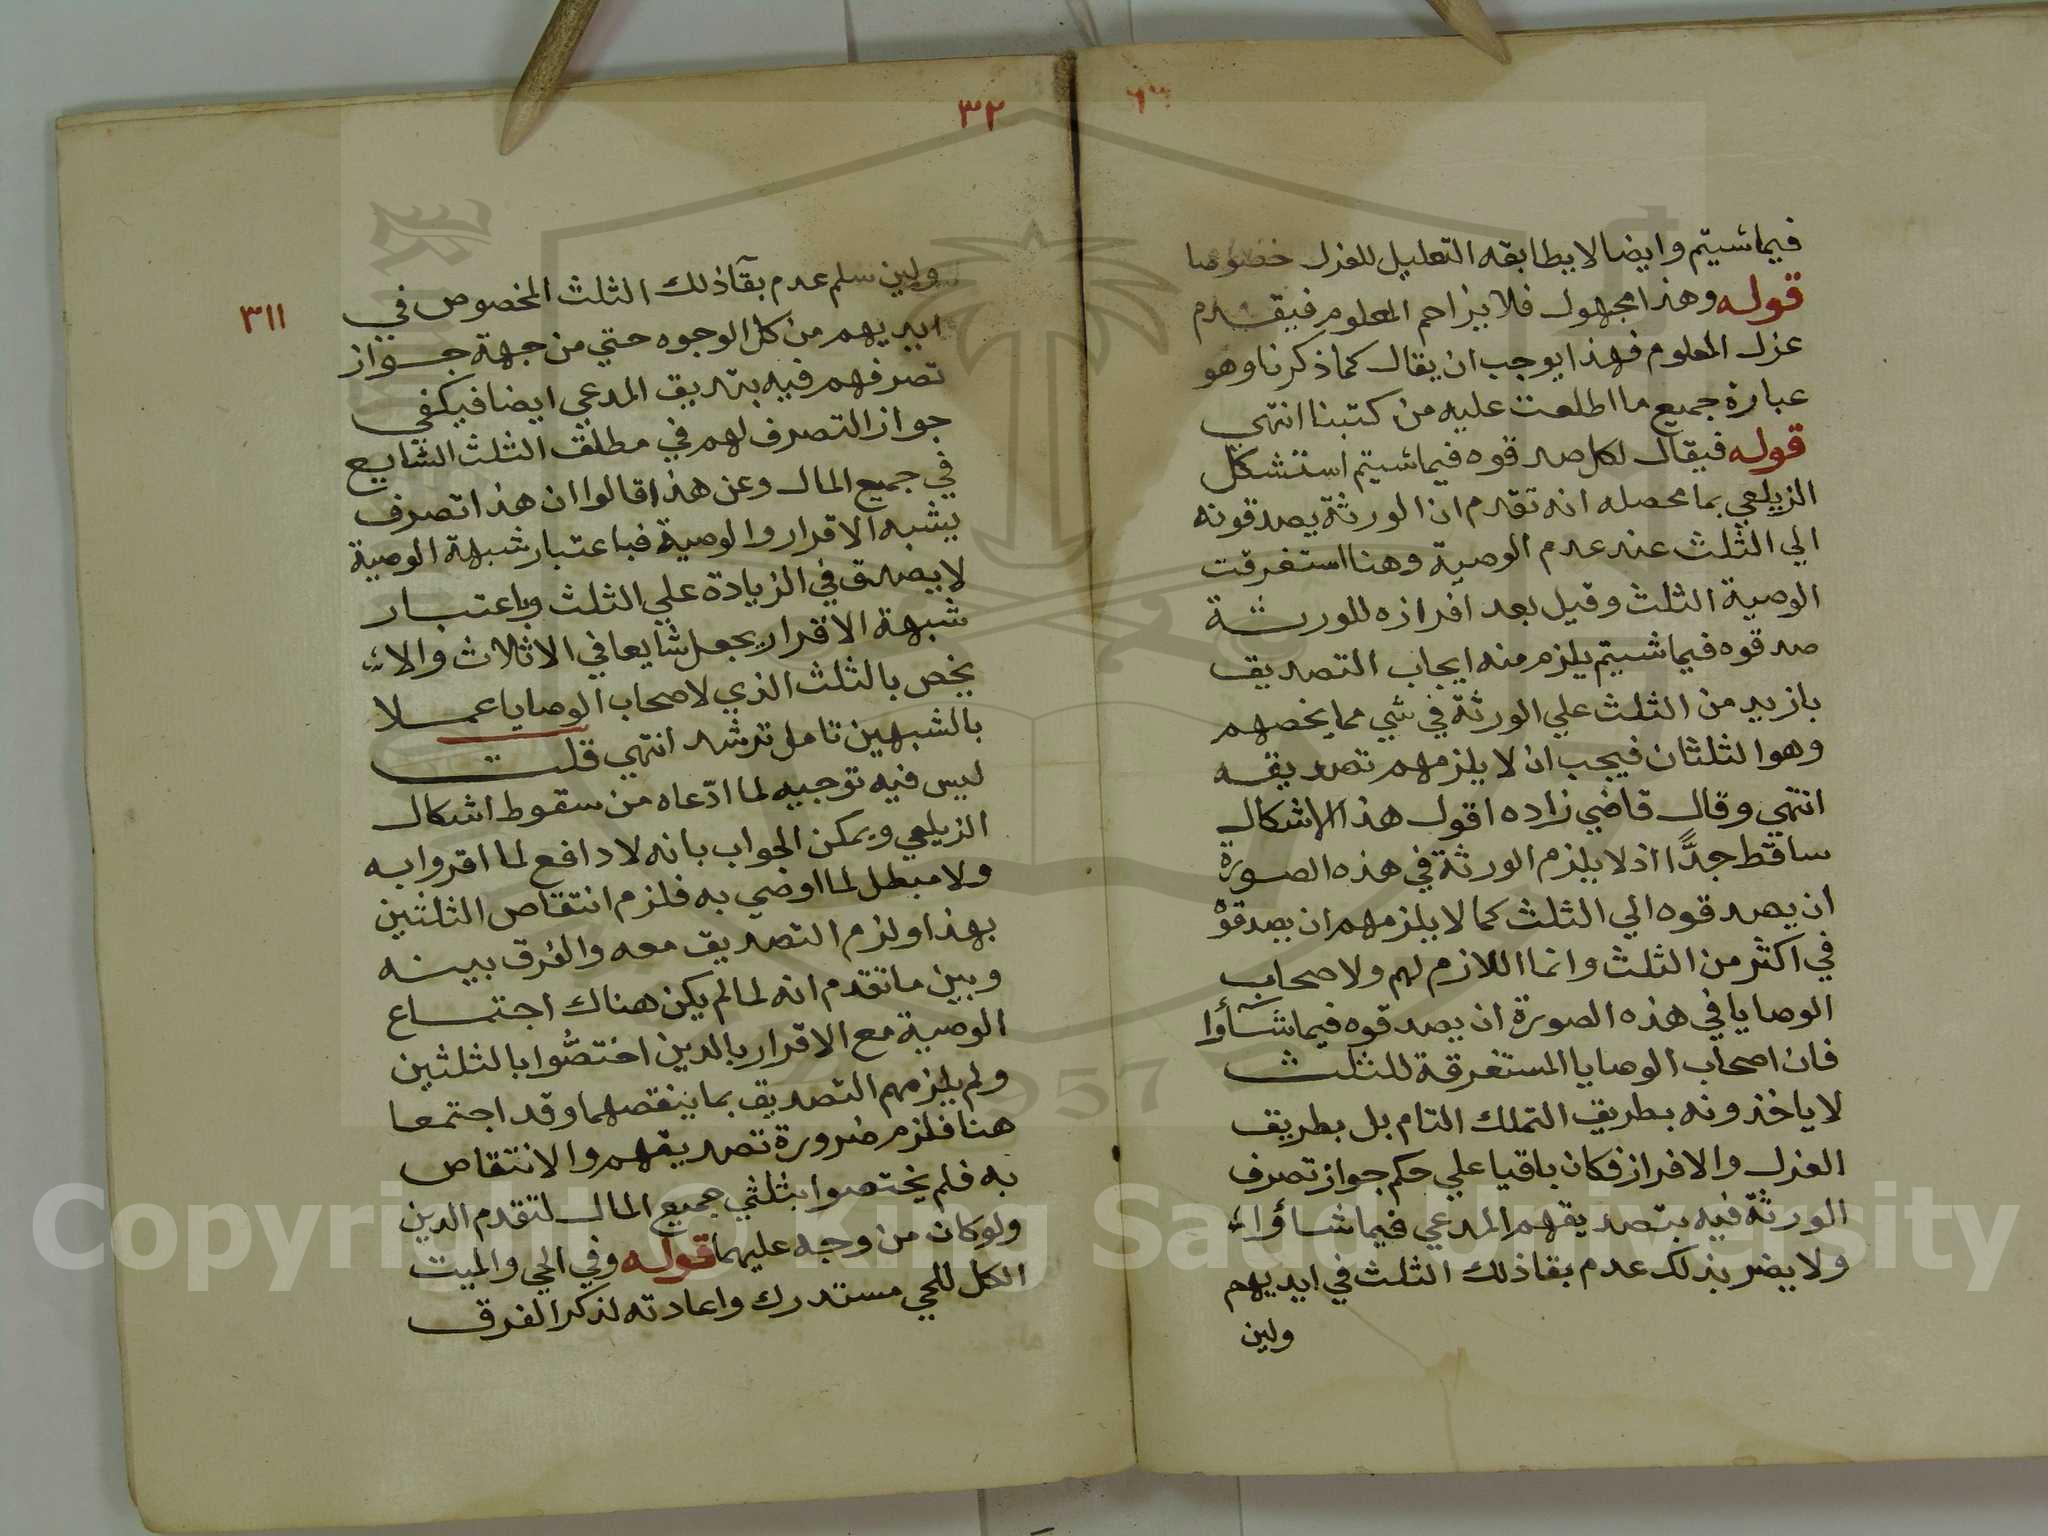 فيما شيتم وايضا لا يطابقه التعليل للعزل خصوصا
قوله وهذا مجهول فلا يزاحم المعلوم فيقدم
عزل المعلوم فهذا يوجب ان يقال كما ذكرنا وهو
عبارة جميع ما اطلعت عليه من كتبنا انتهي
قوله فيقال لكل صدقوه فيما شيتم استشكل
الزيلعي بما محصله انه تقدم ان الورثة يصدقونه
الي الثلث عند عدم الوصية وهنا استغرقت
الوصية الثلث وقيل بعد افرازه للورثة
صدقوه فيما شيتم يلزم منه ايجاب التصديق
بازيد من الثلث علي الورثة في شي مما يخصهم
وهو الثلثان فيجب ان لا يلزمهم تصديقه
انتهي وقال قاضي زاده اقول هذا الاشكال
ساقط جدًّا اذ لا يلزم الورثة في هذه الصورة
ان يصدقوه الي الثلث كما لا يلزمهم ان يصدقوه
في اكثر من الثلث وانما اللازم لهم ولاصحاب
الوصايا في هذه الصورة ان يصدقوه فيما شآؤا
فان اصحاب الوصايا المستغرقة للثلث
لا ياخذونه بطريق التملك التام بل بطريق
العزل والافراز فكان باقيا علي حكم جواز تصرف
الورثة فيه بتصديقهم المدعي فيما شاؤاء
ولا يضر بذلك عدم بقا ذلك الثلث في ايديهم
ولين
٣٢
٣١١
ولين سلم عدم بقآ ذلك الثلث المخصوص في
ايديهم من كل الوجوه حتي من جهة جواز
تصرفهم فيه بتصديق المدعي ايضا فيكفي
جواز التصرف لهم في مطلق الثلث الشايع
في جميع المال وعن هذا قالوا ان هذا تصرف
يشبه الاقرار والوصية فباعتبار شبهة الوصية
لا يصدق في الزيادة علي الثلث وباعتبار
شبهة الاقرار يجعل شايعا في الاثلاث والاء
يخص بالثلث الذي لاصحاب الوصايا عملا
بالشبهين تامل ترشد انتهي قلت
ليس فيه توجيه لما ادّعاه من سقوط اشكال
الزيلعي ويمكن الجواب بانه لا دافع لما اقروا به
ولا مبطل لما اوصي به فلزم انتقاص الثلثين
بهذا ولزم التصديق معه والفرق بينه
وبين ما تقدم انه لما لم يكن هناك اجتماع
الوصية مع الاقرار بالدين اختصُّوا بالثلثين
ولم يلزمهم التصديق بما ينقصهما وقد اجتمعا
هنا فلزم ضرورة تصديقهم والانتقاص
به فلم يختصوا بثلثي جميع المال لتقدم الدين
ولو كان من وجه عليهما قوله وفي الحي والميت
الكل للحي مستدرك واعادته لذكر الفرق
Copyright © King Saud University
1957